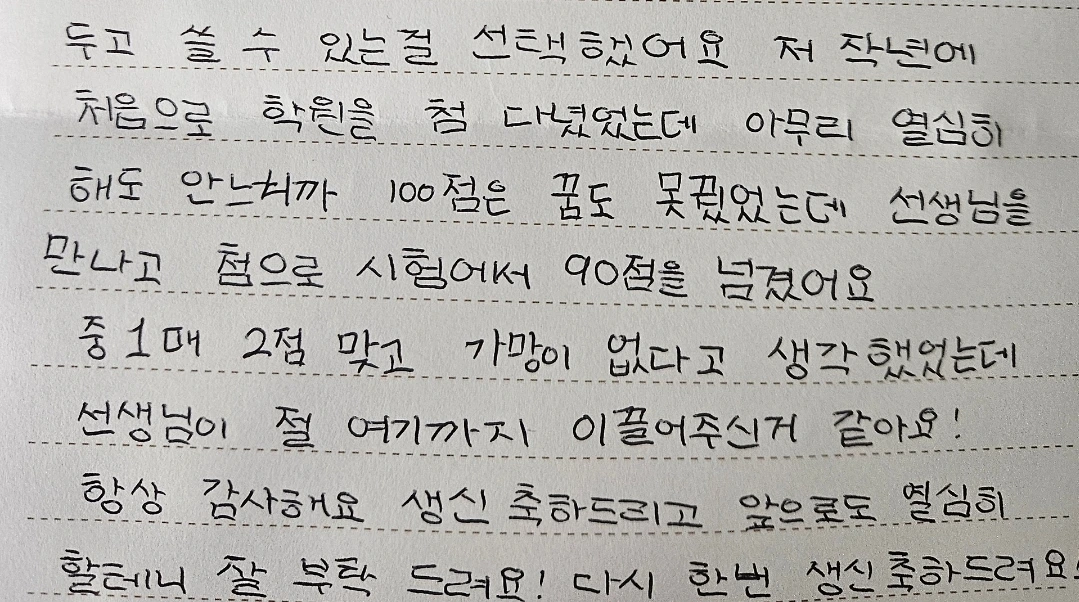 두고 쓸 수 있는걸 선택했어요 저 작년에
처음으로 학원을 첨 다녔었는데 아무리 열심히
해도 안느니까 100점은 꿈도 못꿨었는데 선생님을
만나고 첨으로 시험에서 90점을 넘겼어요
중1때 2점 맞고 가망이 없다고 생각했었는데
선생님이 절 여기까지 이끌어주신거 같아요!
항상 감사해요 생신 축하드리고 앞으로도 열심히
할테니 잘 부탁 드려요! 다시 한번 생신 축하드려요